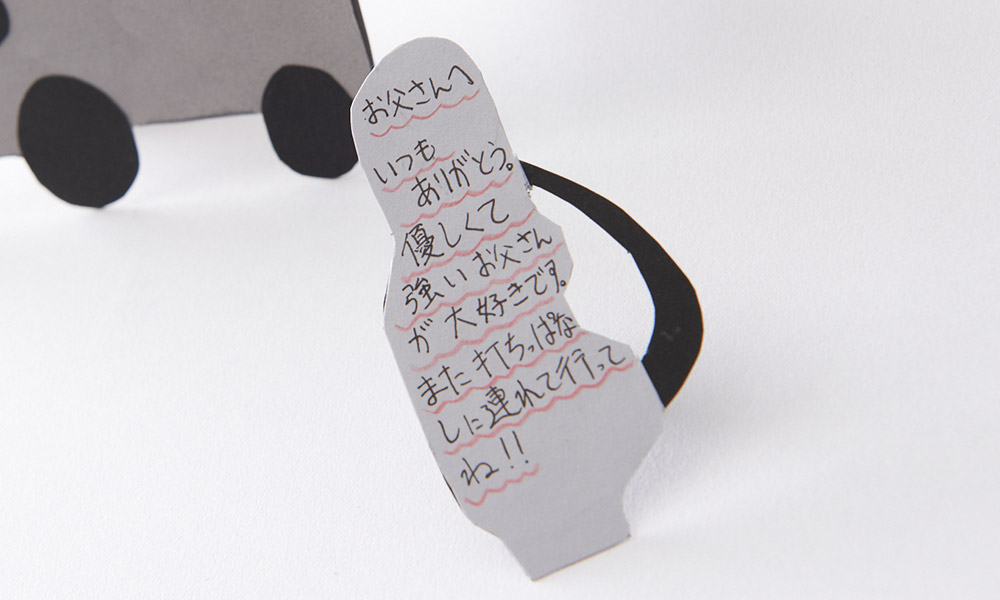 お父さんへ
いつも
ありがとう。
優しくて
強いお父さん
が大好きです。
また打ちっぱな
しに連れて行って
ね!!